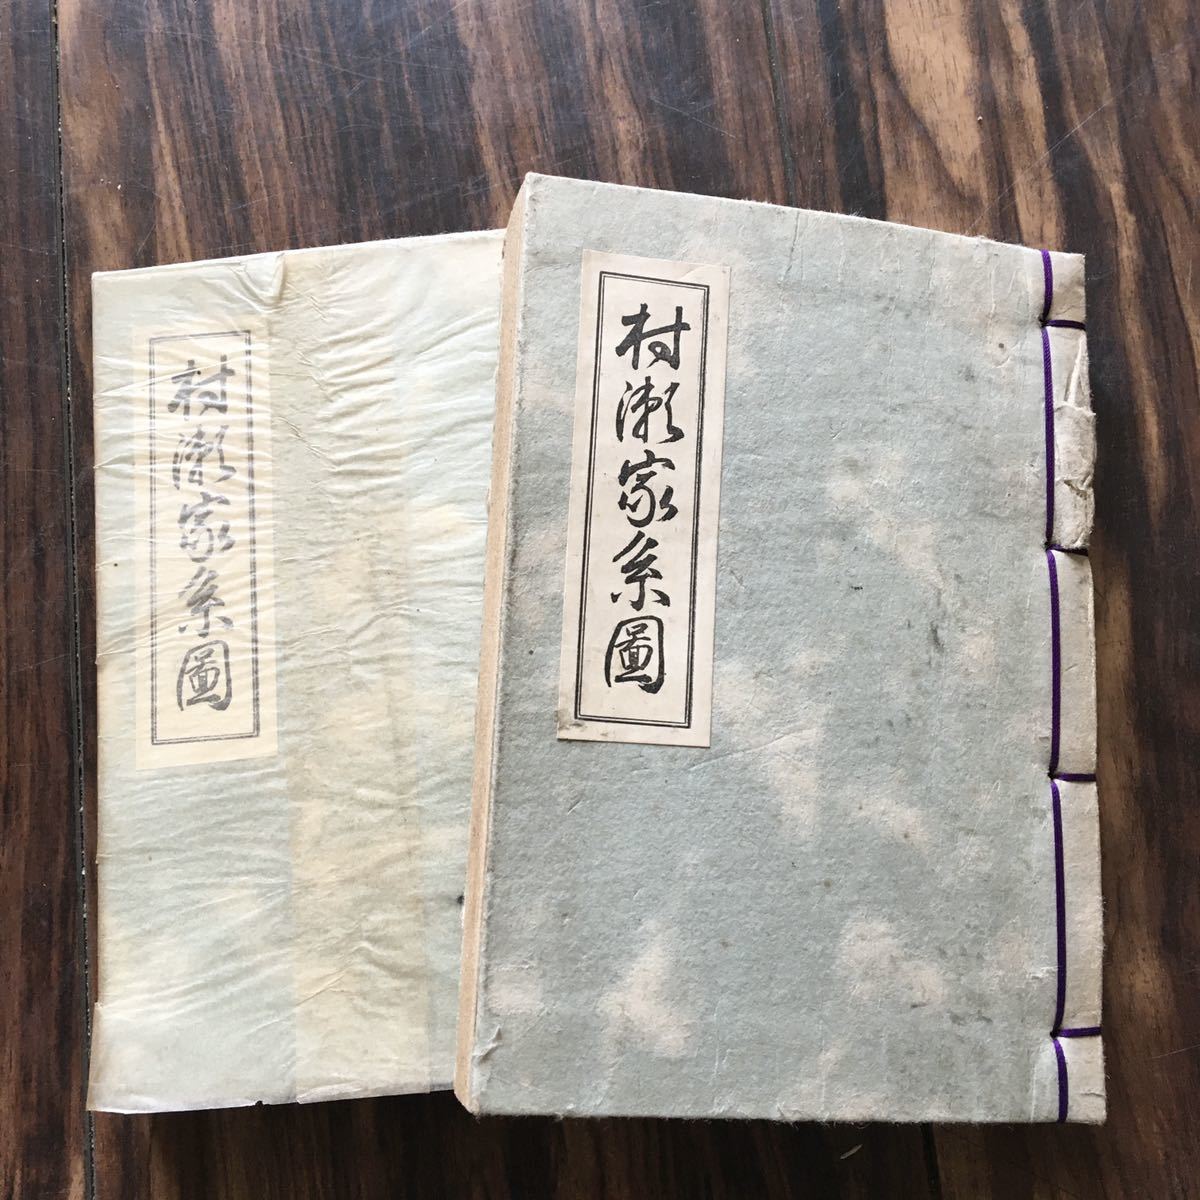 村瀬家系圖
村瀬家系圖